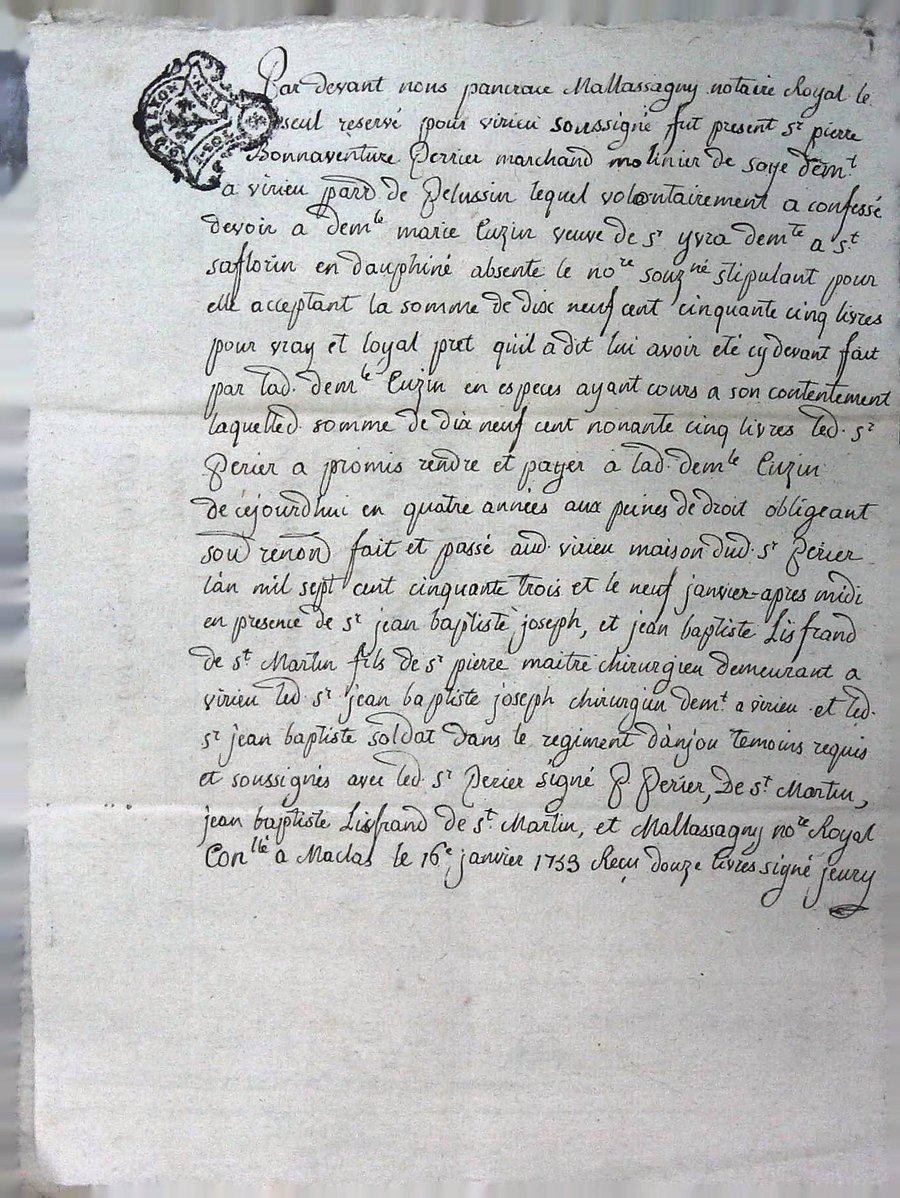 Par devant nous pancrace Mallassagny notaire Royal le
seul reservé pour virieu soussigné fut present sr pierre
Bonnaventure Perrier marchand molinier de soye demt
a virieu parr. de Pelussin lequel volontairement a confessé
devoir a demlle marie Cuzin veuve de sr yvra demte a st
saflorin en dauphiné absente le nore souzné stipulant pour
elle acceptant la somme de dix neuf cent cinquante cinq livres
pour vray et loyal pret quil a dit lui avoir eté cy devant fait
par lad. demlle Cuzin en especes ayant cours a son contentement
laquelled. somme de dix neuf cent nonante cinq livres led. sr
Perier a promis rendre et payer a lad. demlle Cuzin
de cejourdhui en quatre années aux peines de droit obligeant
soud renond fait et passé aud. virieu maison dud. sr Perier
lán mil sept cent cinquante trois et le neuf janvier apres midi
en presence de sr jean baptiste joseph, et jean baptiste Lisfrand
de st. Martin fils de sr pierre maitre chirurgien demeurant a
virieu led. sr jean baptiste joseph chirurgien demt. a virieu et led.
sr jean baptiste soldat dans le regiment dánjou temoins requis
et soussignés avec led. sr Perier signé P Perier, De st Martin,
jean baptiste Lisfrand de st. Martin, et Mallassagny nore Royal
Conllé a Maclas le 16e janvier 1753 Reçu douze livres signé jeury